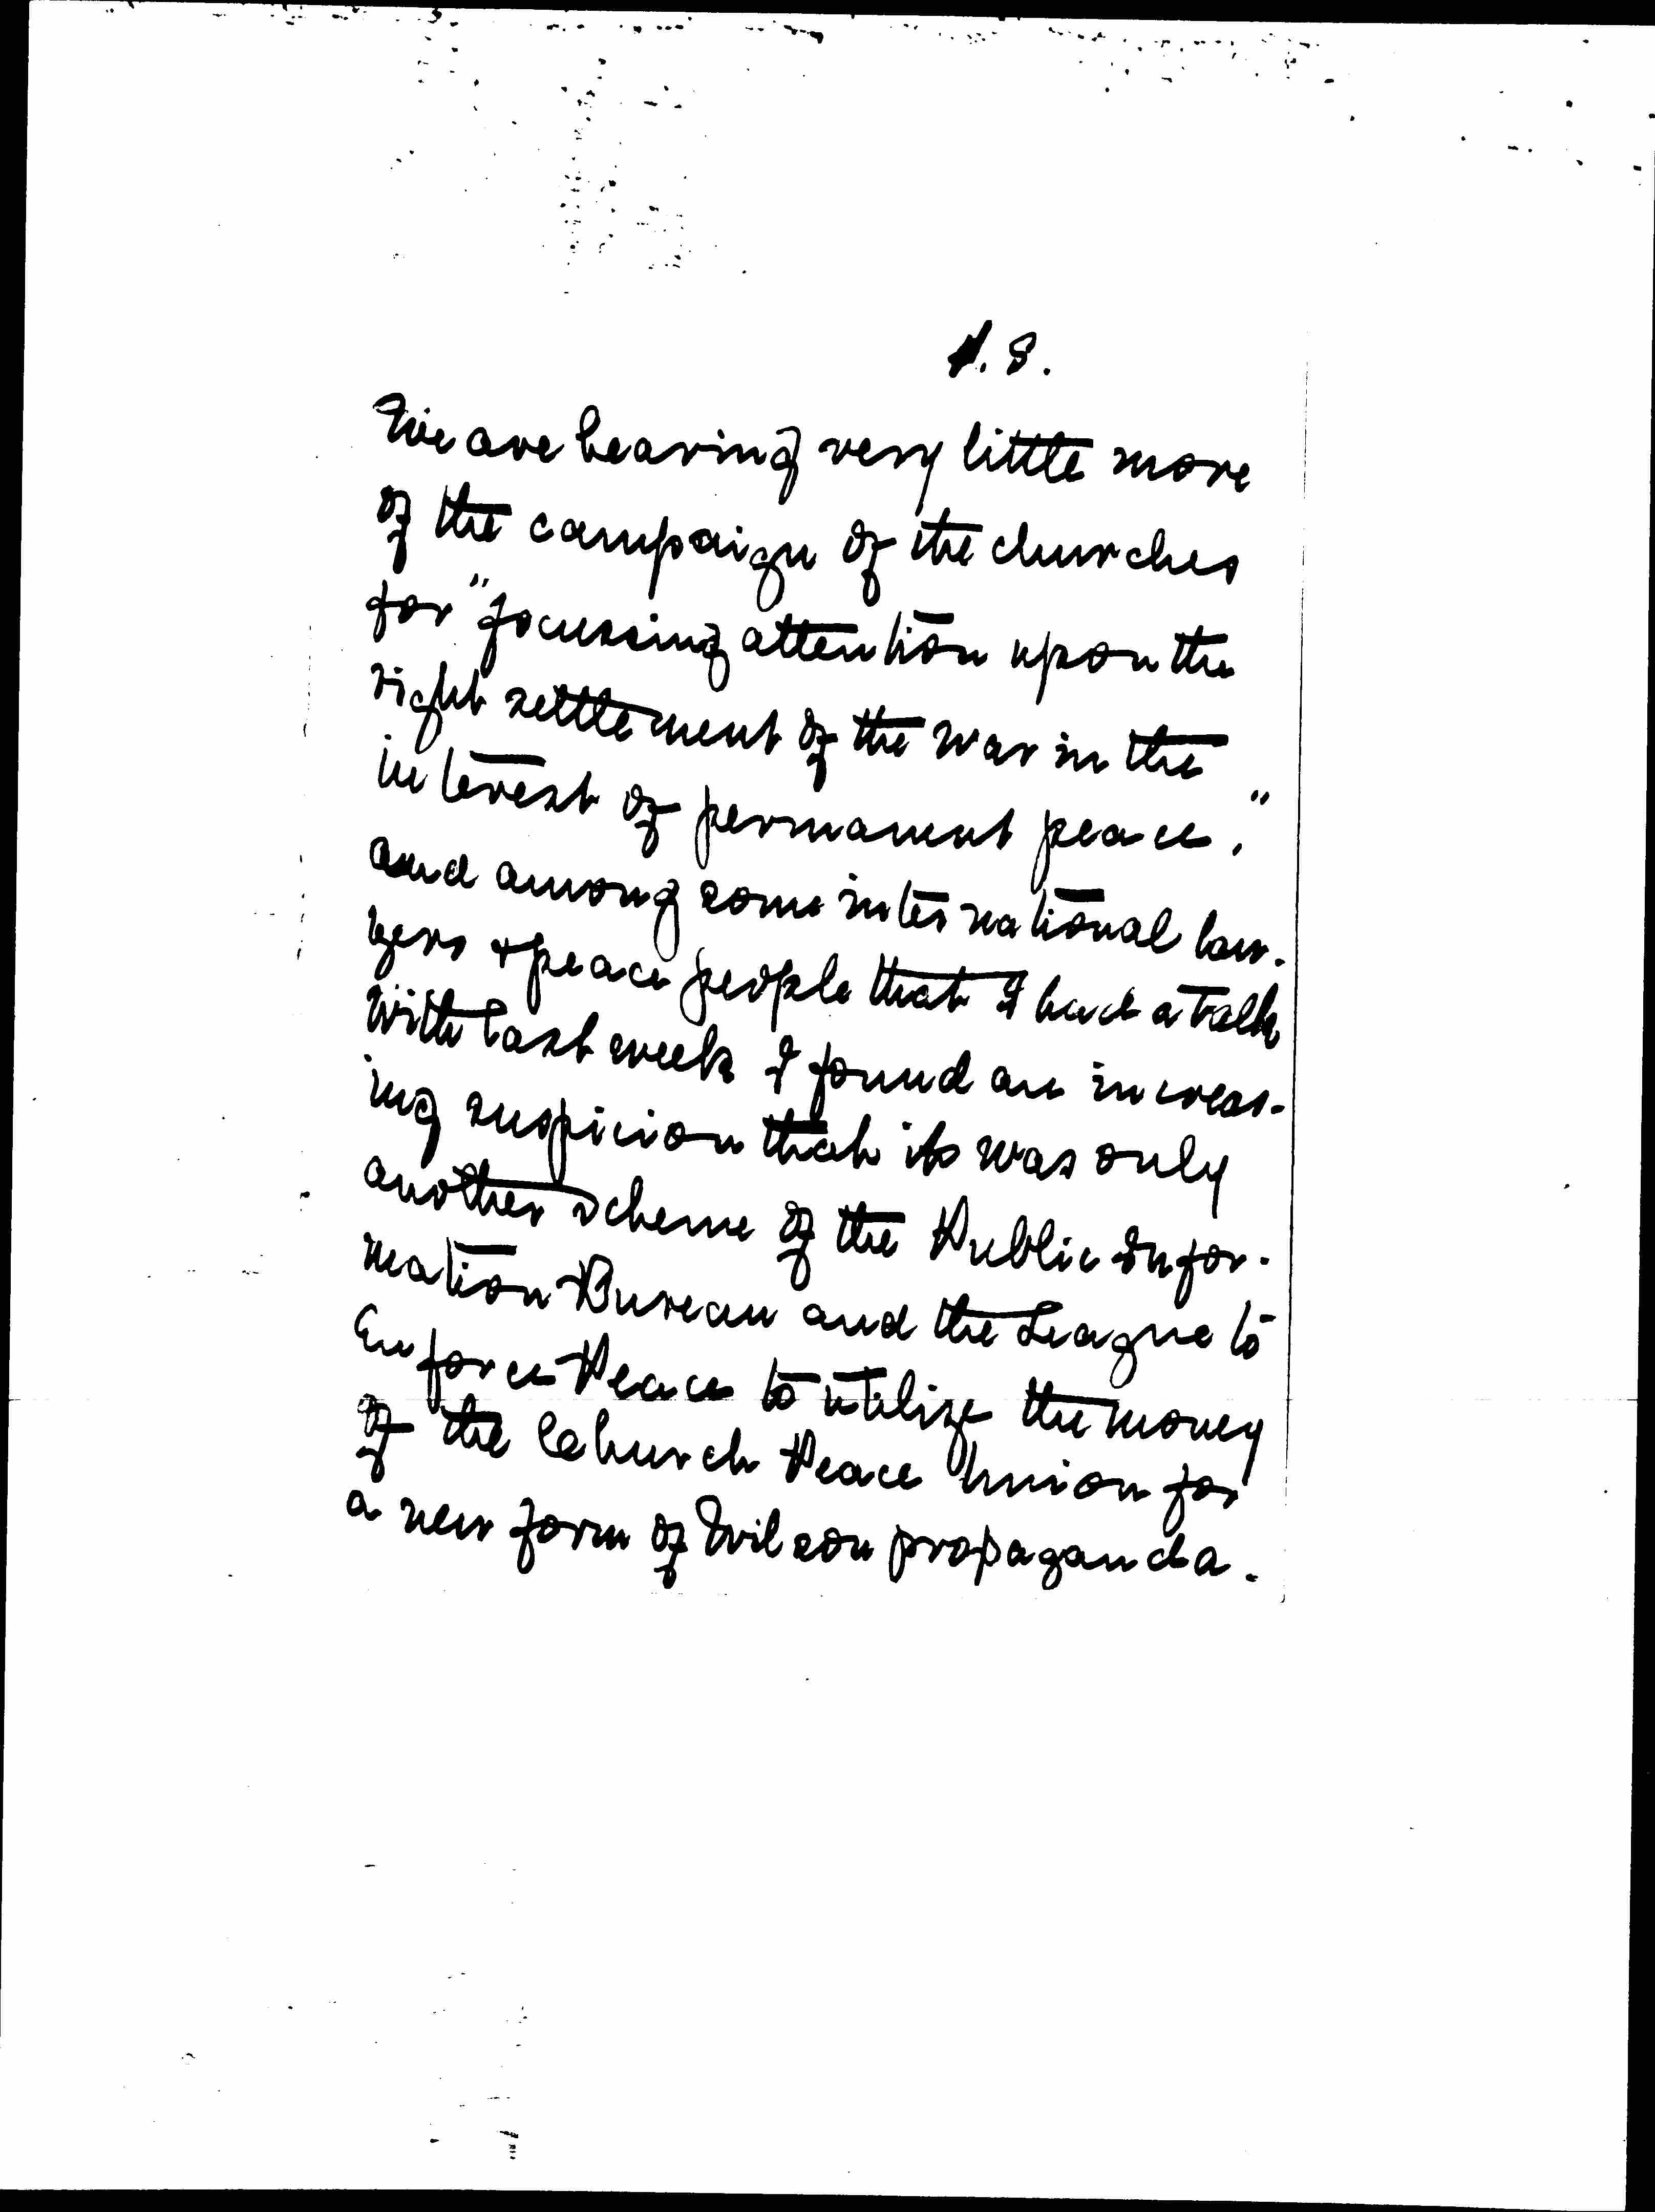 1. 8.
We are hearing very little more
of the campaign of the churches
for "focussing attention upon the
right settlement of the war in the
interest of permanent peace,"
and among some international law-
yers & peace people that I had a talk
with last week I found an increas-
ing suspicion that it was only
another scheme of the Public Infor-
mation Bureau and the League to
Enforce Peace to utilize the money
of the Church Peace Union for
a new form of Wilson propaganda.